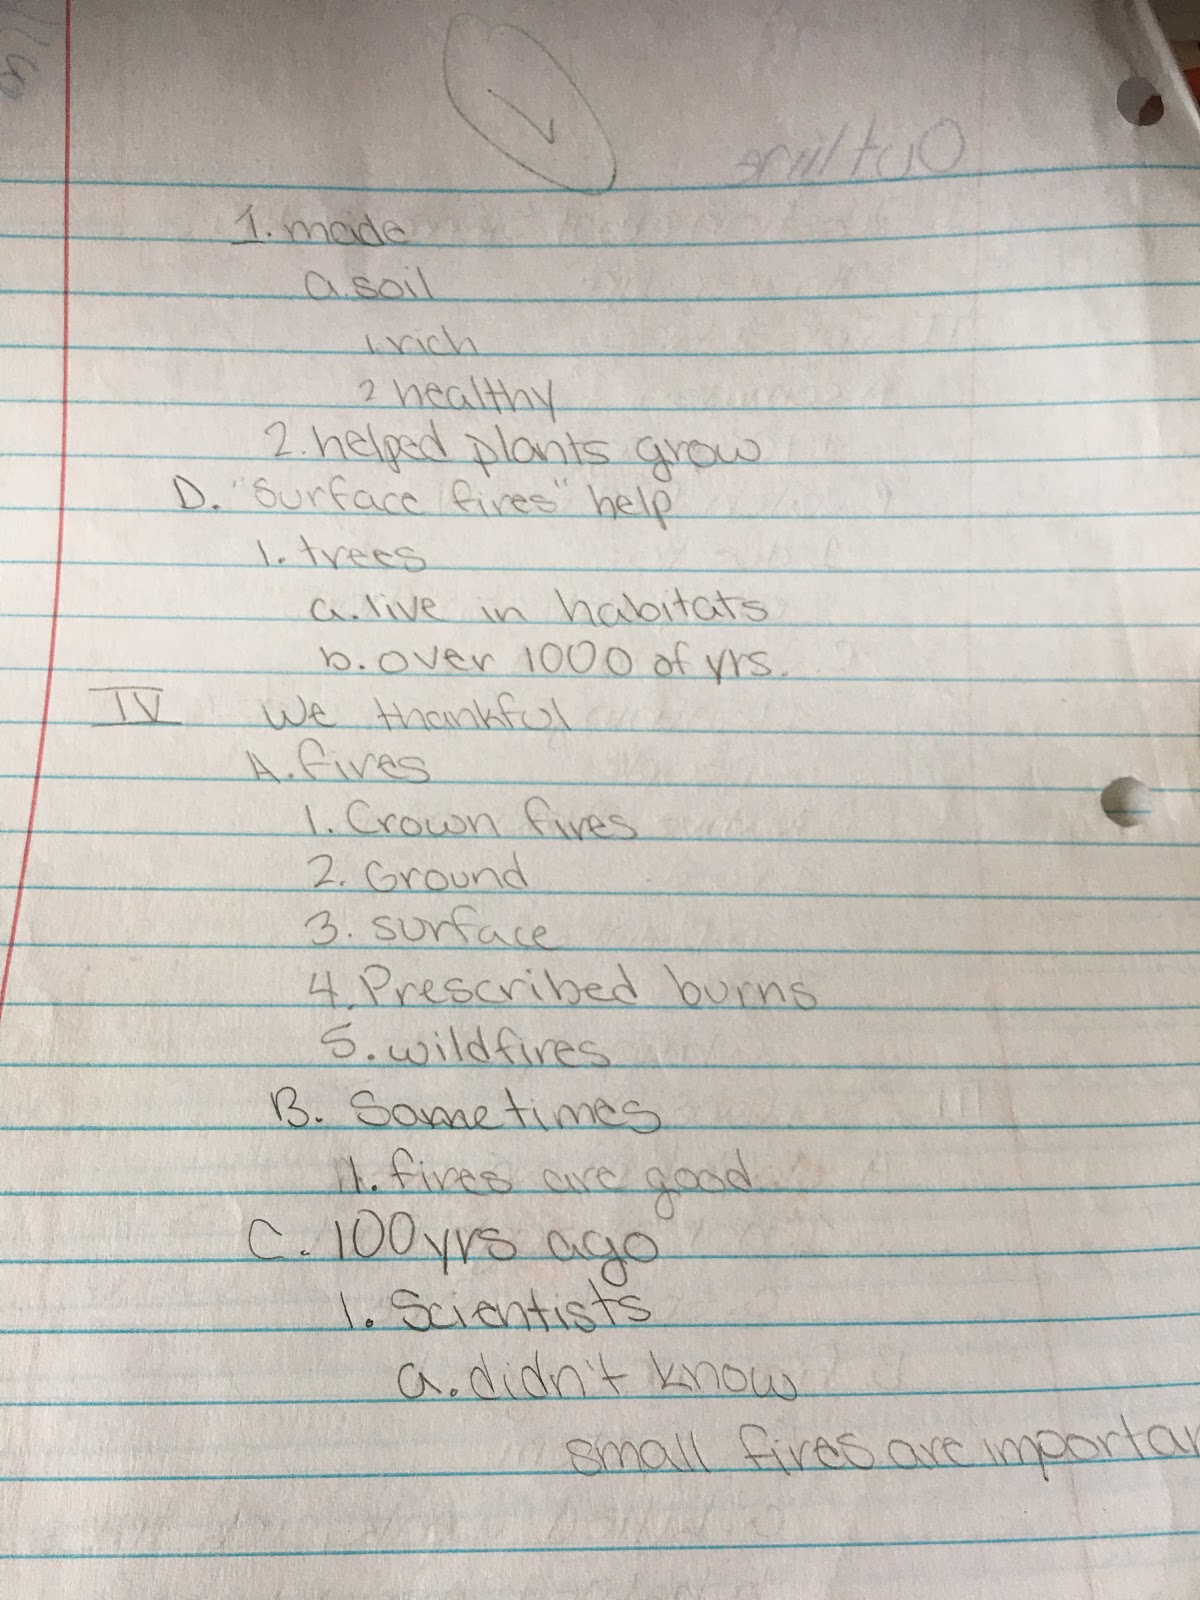 Outline
1. made
a. soil
1. rich
2 healthy
2. helped plants grow
D. "Surface fires" help
1. trees
a. live in habitats
b. over 1000 of yrs.
IV We thankful
A. fires
1. Crown fires
2. Ground
3. surface
4. Prescribed burns
5. wildfires
B. Sometimes
1. fires are good
C. 100 yrs ago
1. Scientists
a. didn't know
small fires are importan